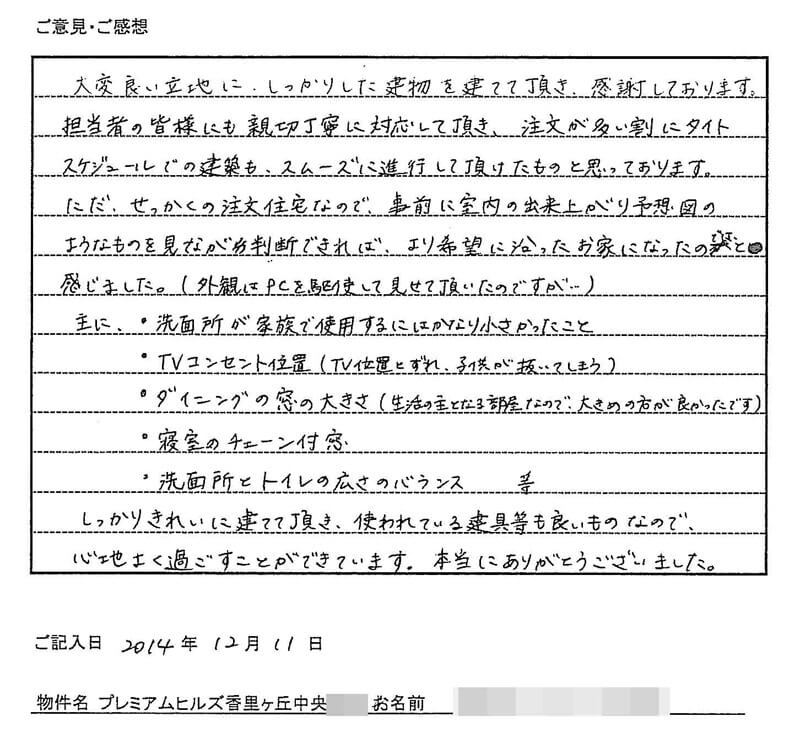 ご意見・ご感想
大変良い立地に、しっかりした建物を建てて頂き、感謝しております。
担当者の皆様にも親切丁寧に対応して頂き、注文が多い割にタイト
スケジュールでの建築も、スムーズに進行して頂けたものと思っております。
ただ、せっかくの注文住宅なので、事前に室内の出来上がり予想図の
ようなものを見ながら判断できれば、より希望に沿ったお家になったのと
感じました。(外観はPCを駆使して見せて頂いたのですが…)
主に、・洗面所が家族で使用するにはかなり小さかったこと
・TVコンセント位置(TV位置とずれ、子供が抜いてしまう)
・ダイニングの窓の大きさ(生活の主となる部屋なので、大きめの方が良かったです)
・寝室のチェーン付窓
・洗面所とトイレの広さのバランス 等
しっかりきれいに建てて頂き、使われている建具等も良いものなので、
心地よく過ごすことができています。本当にありがとうございました。
ご記入日 2014年12月11日
物件名 プレミアムヒルズ香里ヶ丘中央 お名前